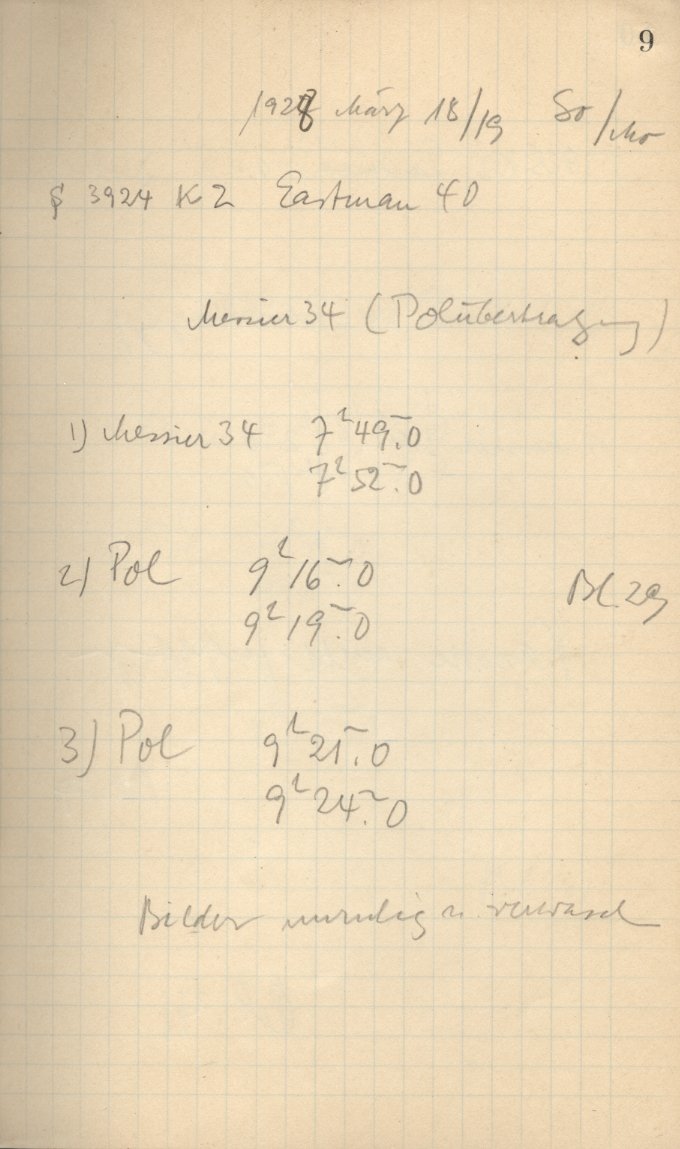 9
1928 März 18/19 So/Mo
§ 3924 K2 Eastman 40
Messier 34 (Polübertragung)
1) Messier 34 7ʰ49ᵐ.0
7ʰ52ᵐ.0
2) Pol 9ʰ16ᵐ.0 Bl. 29
9ʰ19ᵐ.0
3) Pol 9ʰ21ᵐ.0
9ʰ24ᵐ.0
Bilder unruhig u. verwasch